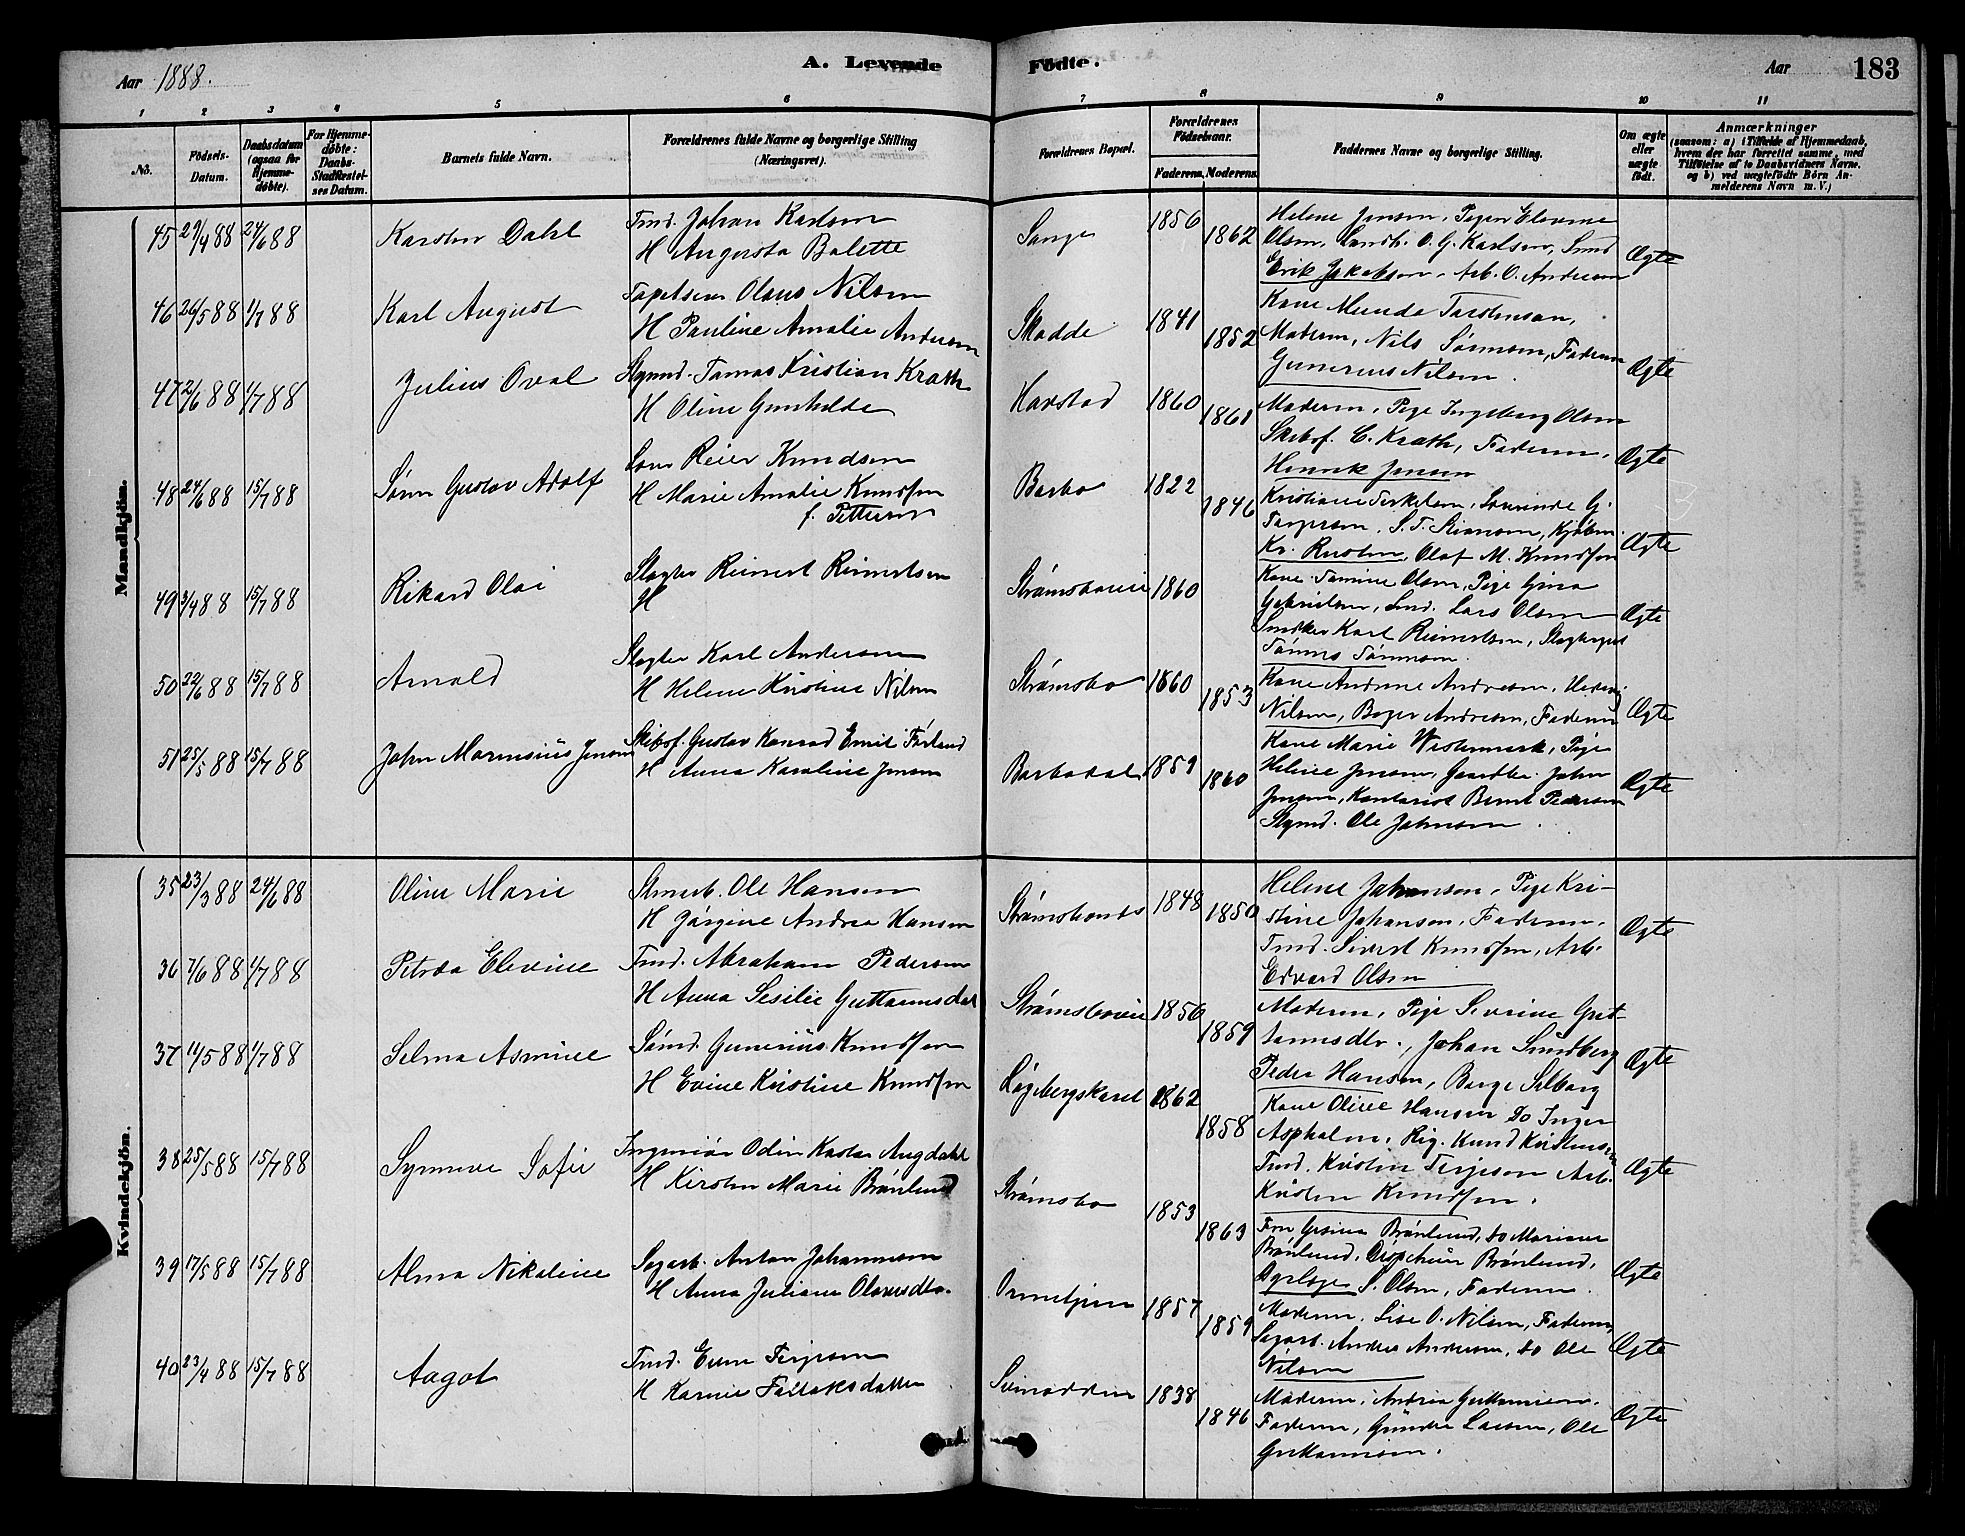 Aar 1888.
A. Levende
Fødte.
Aar
183
1 2 3 4 5 6 7 8 9 10 11
No.
Fødsels-
Datum.
Daabsdatum
(ogsaa for
Hjemme-
døbte).
For Hjemme-
døbte:
Daabs-
Stadfæstel-
ses Datum.
Barnets fulde Navn.
Forældrenes fulde Navne og borgerlige Stilling
(Næringsvei).
Forældrenes Bopæl.
Forældrenes
Fødselsaar.
Faderens. Moderens.
Faddernes Navne og borgerlige Stilling.
Om ægte
eller
uægte
født.
Anmærkninger
(saasom: a) i Tilfælde af Hjemmedaab,
hvem der har forrettet samme, med
Tilføielse af to Daabsvidners Navne.
og b) ved uægtefødte Børn An-
melderens Navn m. V.)
Mandkjøn.
45 29/4 88 24/6 88
Karsten Dahl
Tmd. Johan Karlsen
H Augusta Bolette
Sange
1856
1862
Helene Jensen, Pigen Elevine
Olsen, Landh. O. G. Karlsen, Smd
Erik Jakobsen, Arb. O. Andersen
Ægte
46 26/5 88 1/7 88
Karl August
Tapetserer Olaus Nilsen
H Pauline Amalie Andersen
Skodde
1841
1852
Kone Mende Torstensen,
Moderen, Nils Sørensen, Faderen
Gunerius Nilsen.
Ægte
47 2/6 88 1/7 88
Julius Oval
Stymd. Tomas Kristian Krath
H Oline Gunhilde
Havstad
1860
1861
Moderen, Pige Ingeborg Olsen
Skibsf. C. Krath, Faderen,
Henrik Jensen
Ægte
48 24/6 88 15/7 88
Søren Gustav Adolf
Reier Knudsen
H Marie Amalie Knudsen
f. Pettersen
Barbo
1822
1846
Kristiane Terkelsen, Lovinde G.
Torjersen, S. T. Stiansen, Kjøbm.
Kr. Knudsen, Olaf M. Knudsen
Ægte
49 3/4 88 15/7 88
Rikard Olai
Slagter Reinert Reinertsen
H
Strømsboveie
1860
Kone Tomine Olsen, Pige Gina
Gabrielsen, Smd. Lars Olsen
Snedker Karl Reinertsen, Slagtergut
Tønnes Tønnesen.
Ægte
50 22/6 88 15/7 88
Arnold
Slagter Karl Andersen
H Helene Kristine Nilsen
Strømsbo
1860
1853
Kone Andrine Andresen, Hedevig
Nilsen, Bager Andresen, Faderen
Ægte
51 25/5 88 15/7 88
John Marensius Jensen
Skibsf. Gustav Konrad Emil Førlund
H Anna Karoline Jensen
Barbodal
1859
1860
Kone Marie Westermark, Pige
Helene Jensen, Gaardbr. John
Jensen, Kontorist Bernt Pedersen
Stymd. Ole Johnsen.
Ægte
Kvindekjøn.
35 23/3 88 24/6 88
Oline Marie
Ole Hansen
H Jørgine Andrea Hansen
1848
1850
Helene Johansen, Pige Kri-
stine Johansen, Faderen,
Tmd. Sivert Knudsen, Arb.
Edvard Olsen
Ægte
36 7/6 88 1/7 88
Petrea Elevine
Tmd. Abraham Pedersen
H Anna Sesilie Guttormsdat
Strømsboveie
1856
1859
Moderen, Pige Severine Gut-
tormsdtr., Johan Sundberg
Peder Hansen, Børge Selborg
Ægte
37 11/5 88 1/7 88
Selma Asmine
Sømd. Gunerius Knudsen
H Evine Kristine Knudsen
Løgebergskaret
1862
1858
Kone Oline Hansen Do Inger
Aspholm, Rig. Knud Kristensen
Tmd. Kristen Terjesen Arb.
Kristen Knudsen.
Ægte
38 25/5 88 15/7 88
Synnøve Sofie
Ingeniør Odin Karsten Augdahl
H Kirsten Marie Brønlund
Strømsbo
1853
1863
Fru Gesine Brønlund, do Mariane
Brønlund, Brønlund,
Dyrlæge S. Olsen, Faderen.
Ægte
39 17/5 88 15/7 88
Alma Nikoline
Sagarb. Anton Johannesen
H Anna Juliane Olavesdtr.
1857
1859
Moderen, Lise O. Nilsen, Faderen,
Sagarb. Andres Andersen, do Ole
Nilsen
Ægte
40 23/4 88 15/7 88
Aagot
Tmd. Even Terjesen
H Karine Follaksdatter
Svinodden
1838
1846
Moderen, Andrea Guttormsen,
Faderen, Gunder Larsen, Ole
Guttormsen.
Ægte